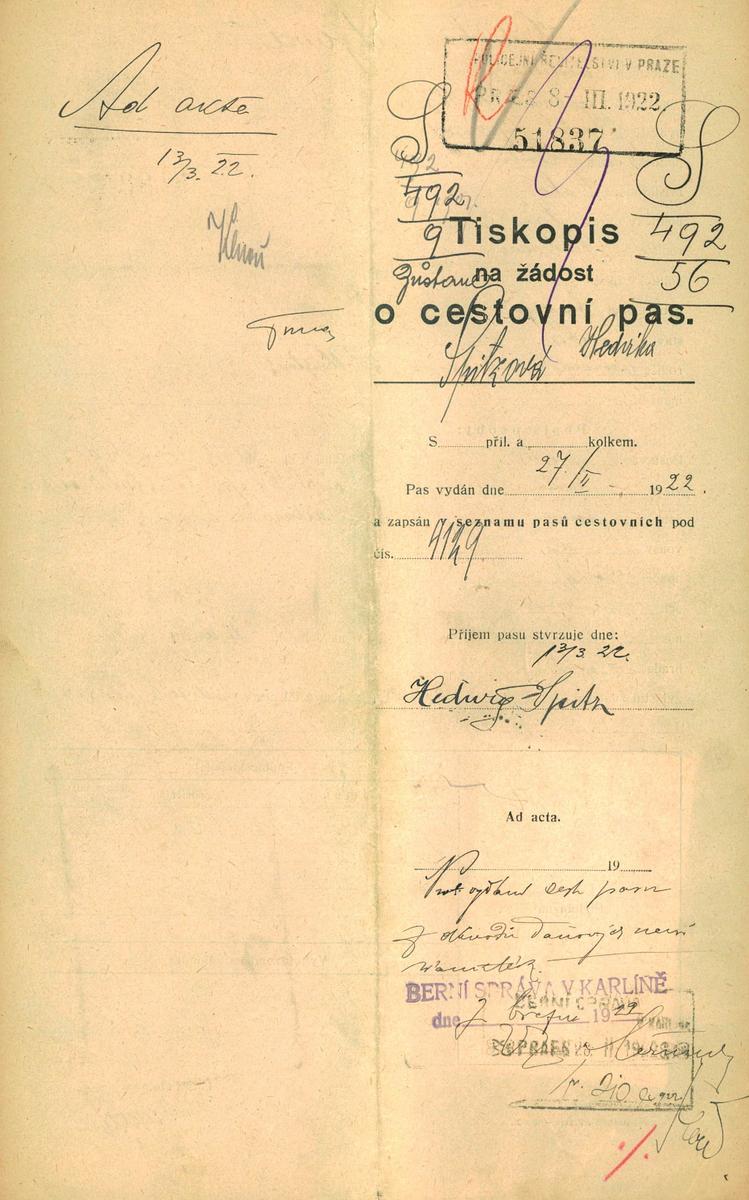 Ad acta
13/3. 22.
POLICEJNÍ ŘEDITELSTVÍ V PRAZE
PRAES 8- III. 1922
51837
S
492
9
S
492
56
Zůstane
Tiskopis
na žádost
o cestovní pas.
Spitzová Hedvika
S příl. a kolkem.
Pas vydán dne 27/II 1922.
a zapsán v seznamu pasů cestovních pod
čís. 4129
Příjem pasu stvrzuje dne:
13/3. 22.
Hedwig Spitz
Ad acta.
19
vydání cest pasu
z důvodů daňových není
BERNÍ SPRÁVA V KARLÍNĚ
dne 7. března 1922
BERNÍ SPRÁVA